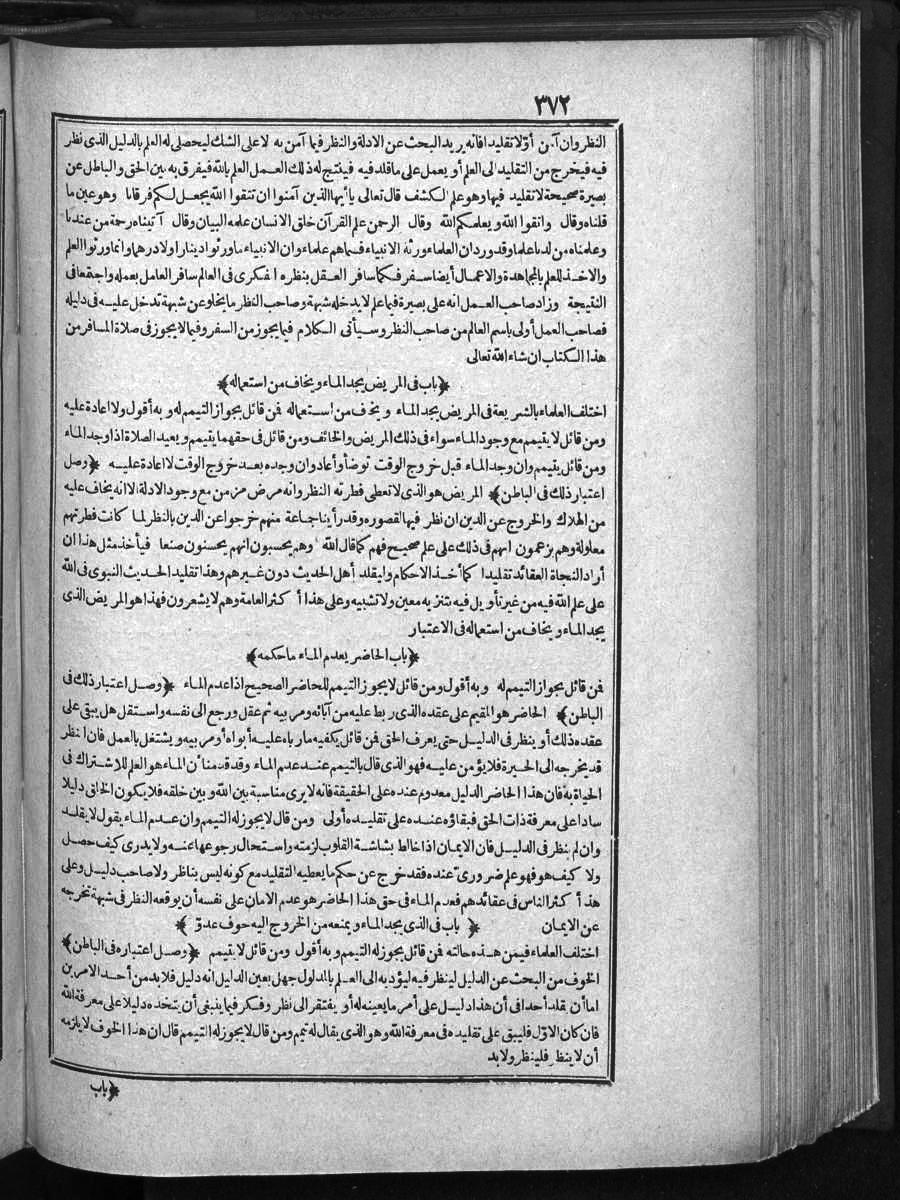 ٣٧٢
النظر وان آمن أوّلا تقليدا فانه يريد البحث عن الادلة والنظر فيما آمن به لا على الشك ليحصل له العلم بالدليل الذى نظر
فيه فيخرج من التقليد الى العلم أو يعمل على ما قلد فيه فينتج له ذلك العمل العلم بالله فيفرق به بين الحق والباطل عن
بصيرة صحيحة لا تقليد فيها وهو علم الكشف قال تعالى يا أيها الذين آمنوا ان تتقوا الله يجعل لكم فرقانا وهو عين ما
قلناه وقال واتقوا الله ويعلمكم الله وقال الرحمن علم القرآن خلق الانسان علمه البيان وقال آتيناه رحمة من عندنا
وعلمناه من لدنا علما وقد ورد ان العلماء ورثة الانبياء فسماهم علماء وان الانبياء ما ورثوا دينارا ولا درهما وانما ورثوا العلم
والاخذ للعلم بالمجاهدة والاعمال أيضا سفر فكما سافر العقل بنظره الفكرى فى العالم سافر العامل بعمله واجتمعا فى
النتيجة وزاد صاحب العمل انه على بصيرة فيما علم لا يدخله شبهة وصاحب النظر ما يخلو عن شبهة تدخل عليه فى دليله
فصاحب العمل أولى باسم العالم من صاحب النظر وسيأتى الكلام فيما يجوز من السفر وفيما لا يجوز فى صلاة المسافر من
هذا الكتاب ان شاء الله تعالى
﴿باب فى المريض يجد الماء ويخاف من استعماله﴾
اختلف العلماء بالشريعة فى المريض يجد الماء ويخاف من استعماله فمن قائل بجواز التيمم له وبه أقول ولا اعادة عليه
ومن قائل لا يتيمم مع وجود الماء سواء فى ذلك المريض والخائف ومن قائل فى حقهما يتيمم ويعيد الصلاة اذا وجد الماء
ومن قائل يتيمم وان وجد الماء قبل خروج الوقت توضأ وأعاد وان وجده بعد خروج الوقت لا اعادة عليه ﴿وصل
اعتبار ذلك فى الباطن﴾ المريض هو الذى لا تعطى فطرته النظر وانه مرض مزمن مع وجود الادلة الا انه يخاف عليه
من الهلاك والخروج عن الدين ان نظر فيها لقصوره وقد رأينا جماعة منهم خرجوا عن الدين بالنظر لما كانت فطرتهم
معلولة وهم يزعمون انهم فى ذلك على علم صحيح فهم كما قال الله وهم يحسبون انهم يحسنون صنعا فيأخذ مثل هذا ان
أراد النجاة العقائد تقليدا كما أخذ الاحكام وليقلد أهل الحديث دون غيرهم وهذا تقليد الحديث النبوى فى الله
على علم الله فيه من غير تأويل فيه بتنزيه معين ولا تشبيه وعلى هذا أكثر العامة وهم لا يشعرون فهذا هو المريض الذى
يجد الماء ويخاف من استعماله فى الاعتبار
﴿باب الحاضر يعدم الماء ما حكمه﴾
فمن قائل بجواز التيمم له وبه أقول ومن قائل لا يجوز التيمم للحاضر الصحيح اذا عدم الماء ﴿وصل اعتبار ذلك فى
الباطن﴾ الحاضر هو المقيم على عقده الذى ربط عليه من آبائه ومربيه ثم عقل ورجع الى نفسه واستقل هل يبقى على
عقده ذلك أو ينظر فى الدليل حتى يعرف الحق فمن قائل يكفيه ما رباه عليه أبواه أو مربيه ويشتغل بالعمل فان النظر
قد يخرجه الى الحيرة فلا يؤمن عليه فهو الذى قال بالتيمم عند عدم الماء وقد قدمنا أن الماء هو العلم للاشتراك فى
الحياة به فان هذا الحاضر الدليل معدوم عنده على الحقيقة فانه لا يرى مناسبة بين الله وبين خلقه فلا يكون الخلق دليلا
سادا على معرفة ذات الحق فبقاؤه عنده على تقليده أولى ومن قال لا يجوز له التيمم وان عدم الماء يقول لا يقلد
وان لم ينظر فى الدليل فان الايمان اذا خالط بشاشة القلوب لزمته واستحال رجوعها عنه ولا يدرى كيف حصل
ولا كيف هو فهو علم ضرورىّ عنده فقد خرج عن حكم ما يعطيه التقليد مع كونه ليس بناظر ولا صاحب دليل وعلى
هذا أكثر الناس فى عقائدهم فعدم الماء فى حق هذا الحاضر هو عدم الامان على نفسه أن يوقعه النظر فى شبهة تخرجه
عن الايمان ﴿باب فى الذى يجد الماء ويمنعه من الخروج اليه خوف عدوّ﴾
اختلف العلماء فيمن هذه حالته فمن قائل يجوز له التيمم وبه أقول ومن قائل لا يتيمم ﴿وصل اعتباره فى الباطن﴾
الخوف من البحث عن الدليل لينظر فيه ليؤديه الى العلم بالمدلول جهل بعين الدليل انه دليل فلا بد من أحد الامرين
اما أن يقلد أحدا فى أن هذا دليل على أمر ما يعينه له أو يفتقر الى نظر وفكر فيما ينبغى أن يتخذه دليلا على معرفة الله
فان كان الاوّل فليبق على تقليده فى معرفة الله وهو الذى يقال له تيمم ومن قال لا يجوز له التيمم قال ان هذا الخوف لا يلزمه
أن لا ينظر فلينظر ولا بد
﴿باب